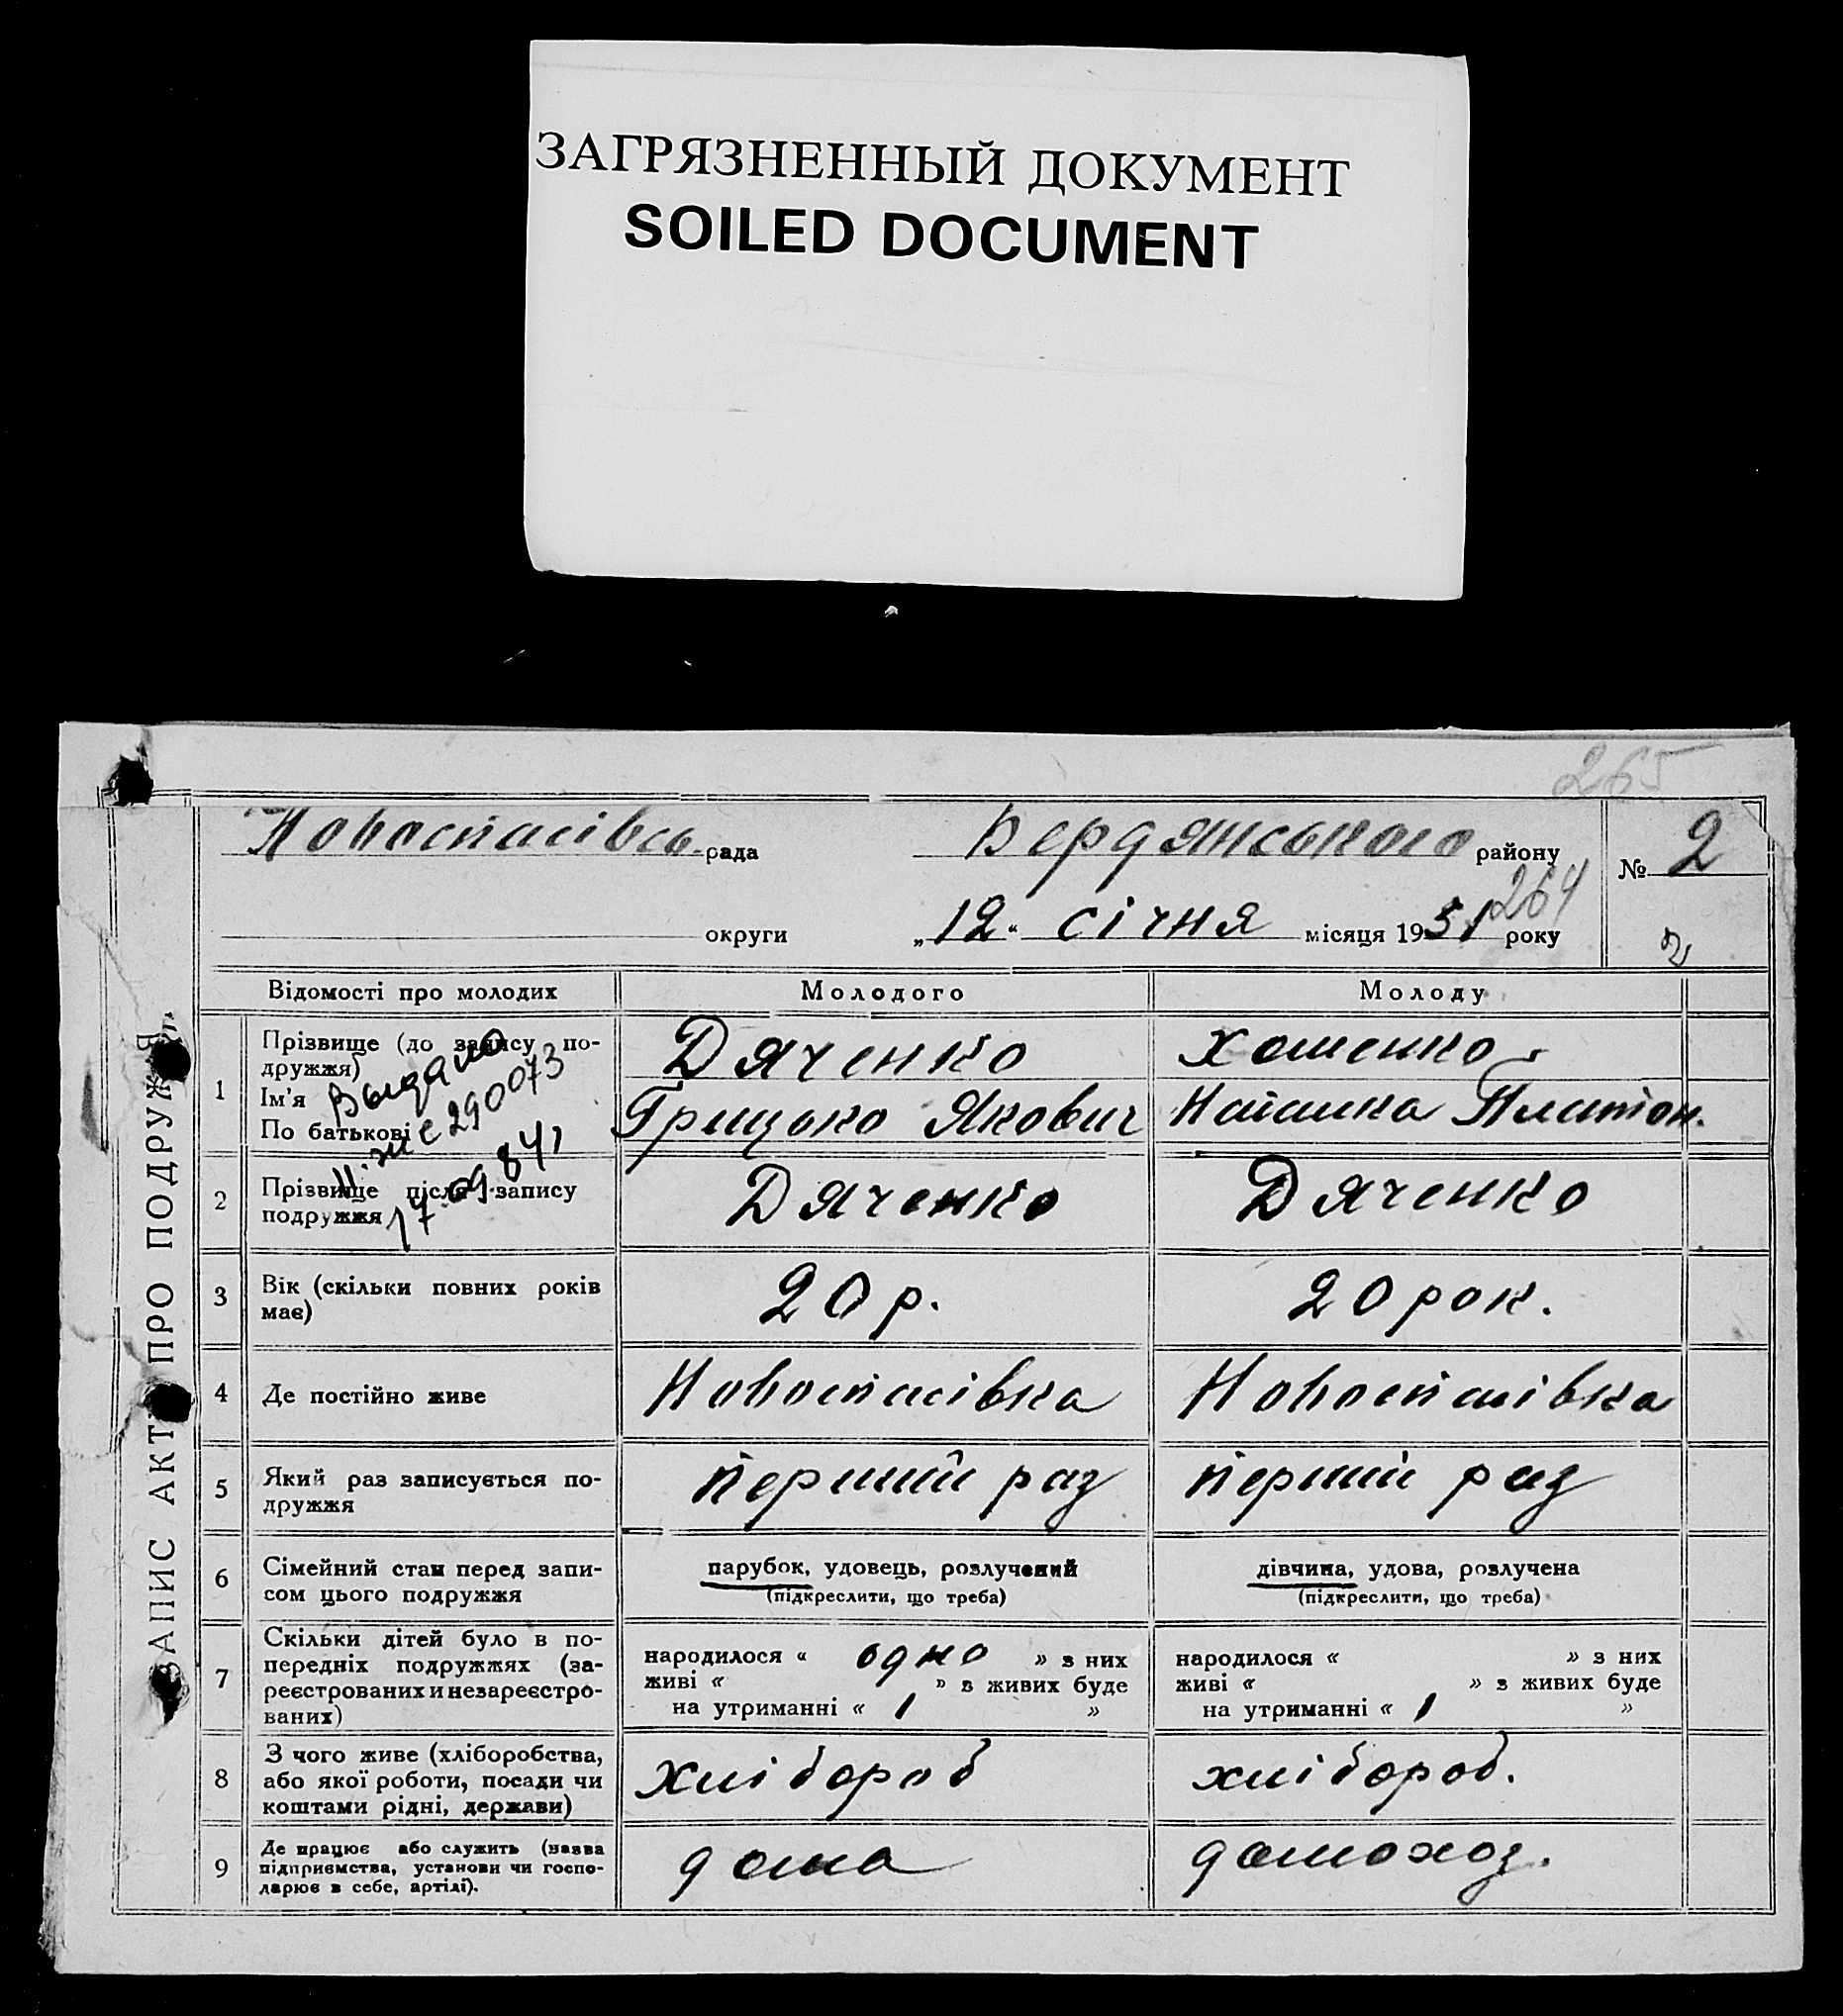 ЗАГРЯЗНЕННЫЙ ДОКУМЕНТ
SOILED DOCUMENT
265
Новоспасівсь. рада
Бердянського району
№ 2
264
округи
„12“ січня місяця 1931 року
2
ЗАПИС АКТ ПРО ПОДРУЖ Я
Відомості про молодих
Молодого
Молоду
1
Прізвище (до запису по-
дружжя)
Ім'я
По батькові
Выдано
е 290073
17.09.84
Дяченко
Грицько Якович
Хоменко
Наталка Платон.
2
Прізвище після запису
подружжя
Дяченко
Дяченко
3
Вік (скільки повних років
має)
20 р.
20 рок.
4
Де постійно живе
Новоспасівка
Новоспасівка
5
Який раз записується по-
дружжя
перший раз
перший раз
6
Сімейний стан перед запи-
сом цього подружжя
парубок, удовець, розлучений
(підкреслити, що треба)
дівчина, удова, розлучена
(підкреслити, що треба)
7
Скільки дітей було в по-
передніх подружжях (за-
реєстрованих и незареєстро-
ваних)
народилося « одно » з них
живі « » з живих буде
на утриманні « 1 »
народилося « » з них
живі « » з живих буде
на утриманні « 1 »
8
З чого живе (хліборобства,
або якої роботи, посади чи
коштами рідні, держави)
хлібороб
хлібороб.
9
Де працює або служить (назва
підприємства, установи чи госпо-
дарює в себе, артілі).
дома
домохоз.